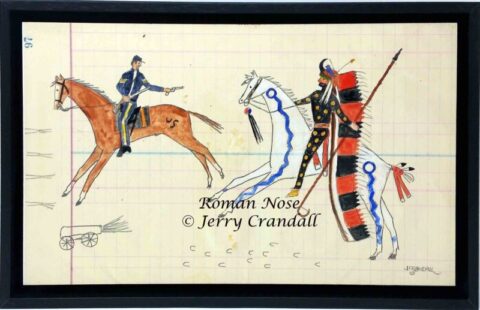 97
US
Roman Nose
© Jerry Crandall